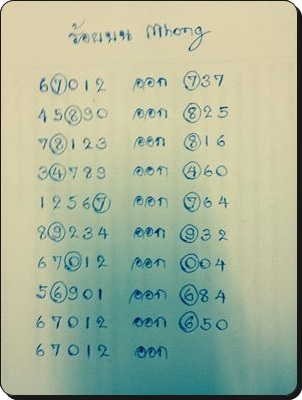 ร้อยบน Mhong
67012 ออก 737
45890 ออก 825
78123 ออก 816
34789 ออก 460
12567 ออก 764
89234 ออก 932
67012 ออก 004
56901 ออก 684
67012 ออก 650
67012 ออก